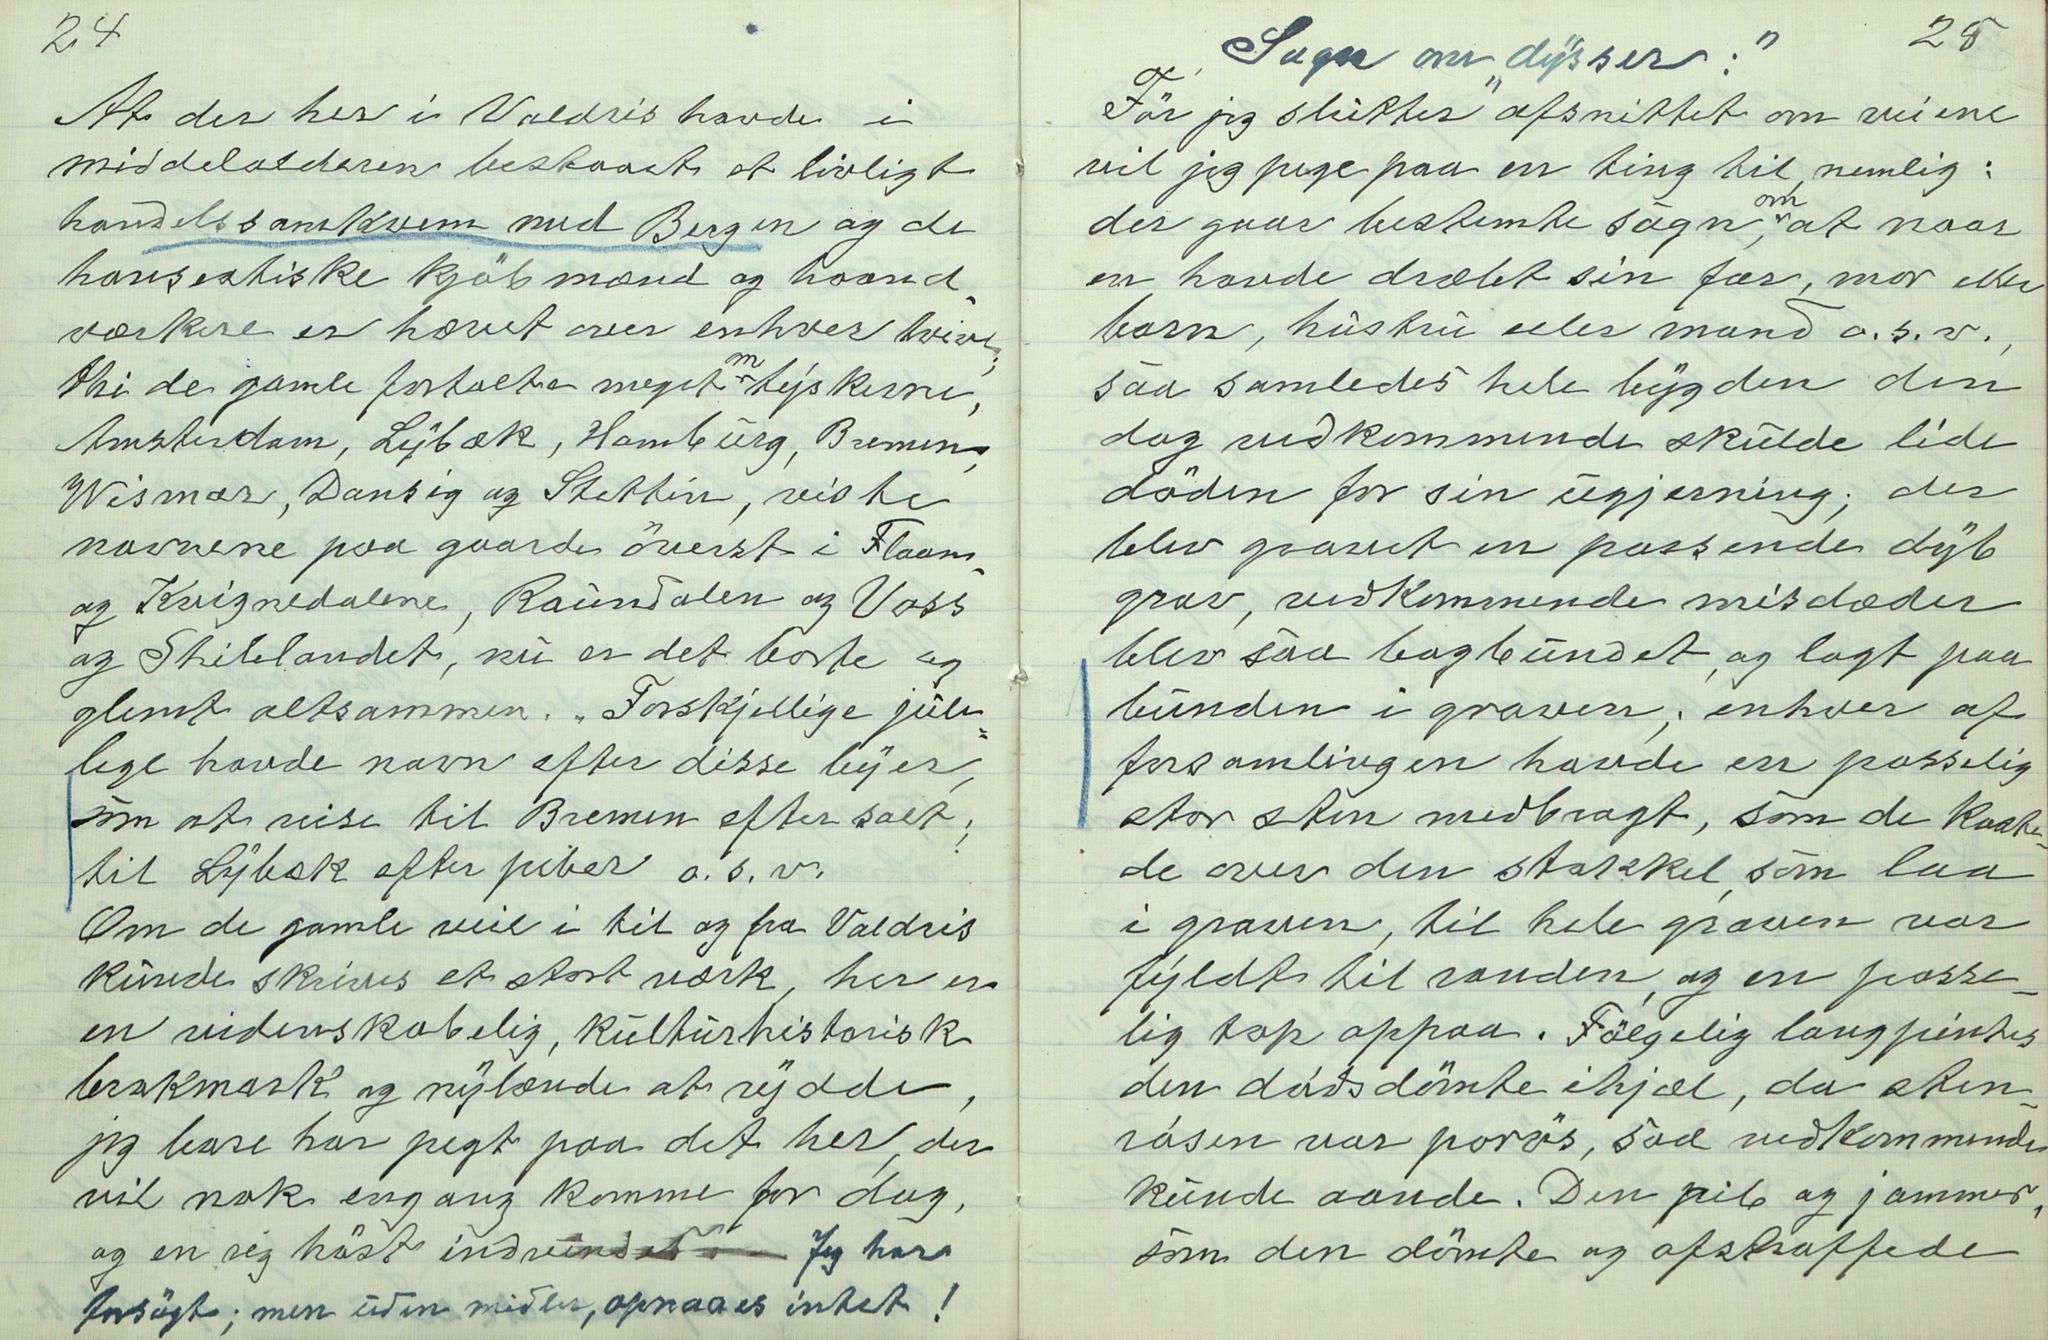 24
At der her i Valdris havde i
middelalderen bestaaet et livligt
handelssamkvem med Bergen og de
hanseatiske kjöbmænd og haand-
værkere er hævet over enhver tvivl;
thi de gamle fortalte meget om tyskerne,
Amsterdam, Lybæk, Hamburg, Bremen,
Wismar, Dansig og Stettin, viste
navnene paa gaarde överst i Flaam-
og Kvignedalene, Raundalen og Voss
og Strilelandet, nu er det borte og
glemt altsammen. „Forskjellige jule=
lege havde navn efter disse byer,
som at reise til Bremen efter salt;
til Lybæk efter piber o.s.v.
Om de gamle veie i til og fra Valdris
kunde skrives et stort værk, her er
en videnskabelig, kulturhistorisk
brakmark og nylænde at rydde,
jeg bare har pegt paa det her, der
vil nok engang komme for dag,
og en rig höst indvundet Jeg har
forsögt; men uden midler, opnaaes intet!
25
Sagn om dysser:"
För jeg slutter afsnittet om veiene
vil jeg pege paa en ting til, nemlig:
der gaar bestemte sagn, om at naar
en havde dræbt sin far, mor eller
barn, hustru eller mand o.s.v.,
saa samledes hele bygden den
dag vedkommende skulde lide
döden for sin ugjerning; der
blev gravet en passende dyb
grav, vedkommende misdæder
blev saa bagbundet, og lagt paa
bunden i graven; enhver af
forsamlingen havde en passelig
stor sten medbragt, som de kaste-
de over den stakkel, som laa
i graven, til hele graven var
fyldt til randen, og en passe-
lig top oppaa. Fölgelig langpintes
den dödsdömte ihjæl, da sten-
rösen var porös, saa vedkommende
kunde aande. Den pib og jammer,
som den dömte og afstraffede